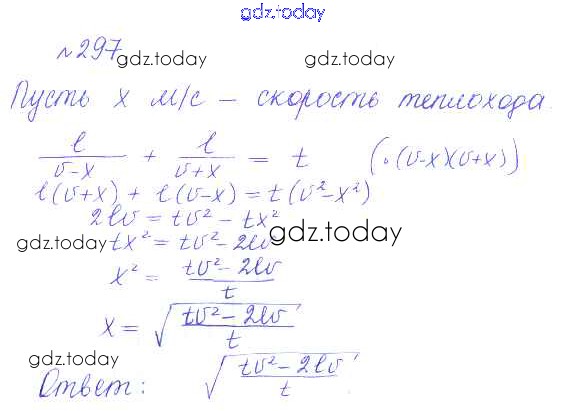 gdz.today
№297
gdz.today gdz.today
Пусть x м/с – скорость теплохода.
l/(v-x) + l/(v+x) = t (·(v-x)(v+x))
l(v+x) + l(v-x) = t(v²-x²)
2lv = tv² - tx²
gdz.today tx² = tv² - 2lv gdz.today
x² = (tv² - 2lv)/t
x = √((tv² - 2lv)/t)
gdz.today gdz.today
Ответ: √((tv² - 2lv)/t)